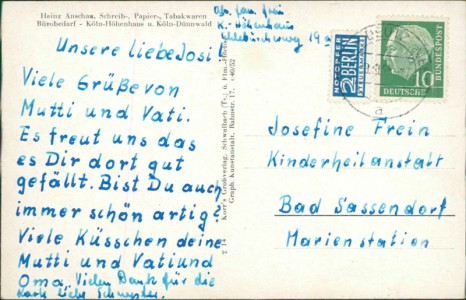 Heinz Anschau, Schreib-, Papier-, Tabakwaren
Bürobedarf - Köln-Höhenhaus u. Köln-Dünnwald
Unsere liebe Josi!
Viele Grüße von
Mutti und Vati.
Es freut uns das
es Dir dort gut
gefällt. Bist Du auch
immer schön artig?
Viele Küsschen deine
Mutti und Vati und
Oma. Vielen Dank für die
Karte liebe Schwester.
Abs. Fam. Frein
K.-Höhenhaus
T 14
Korr's Großverlag, Schwallbach (Ts.) u. Ffm.-Höchst
Graph. Kunstanstalt, Bahnstr. 17,
NOTOPFER
2 BERLIN
STEUERMARKE
DEUTSCHE
BUNDESPOST
10
a
Josefine Frein
Kinderheilanstalt
Bad Sassendorf
Marienstation